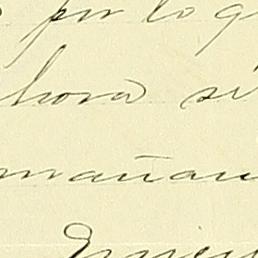 por lo q
hora si
mañan